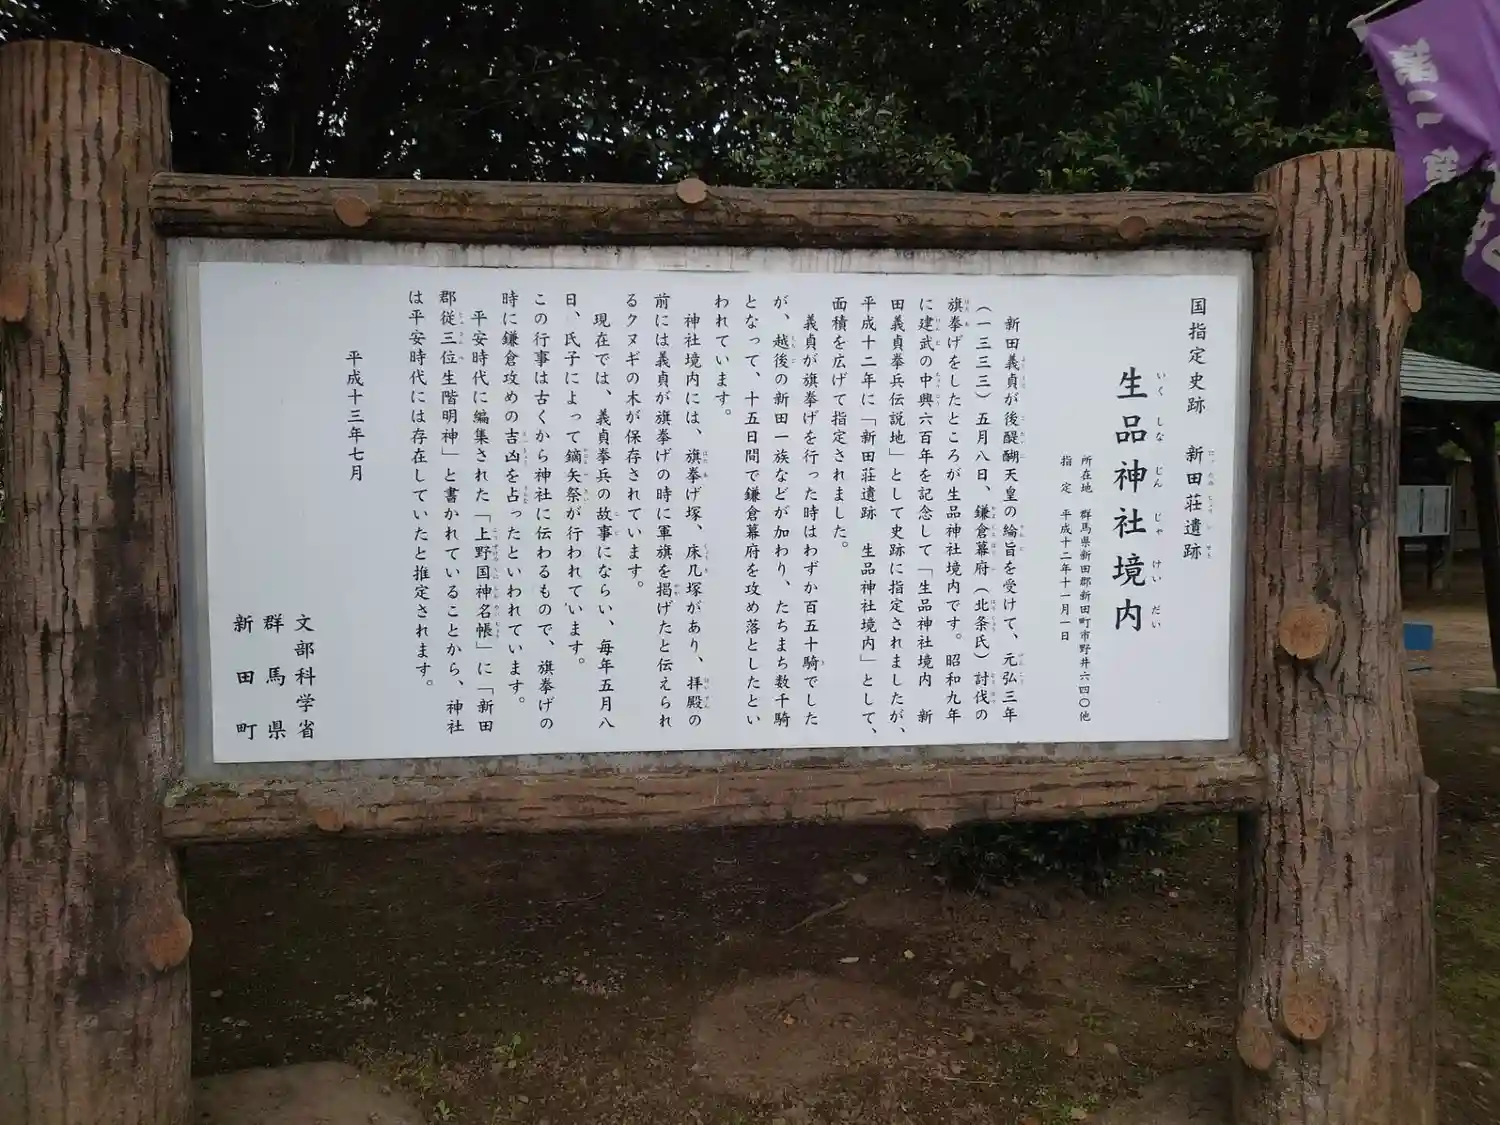 国指定史跡　新田荘遺跡
生品神社境内
所在地　群馬県新田郡新田町市野井六四〇他
指　定　平成十二年十一月一日
新田義貞が後醍醐天皇の綸旨を受けて、元弘三年
(一三三三)五月八日、鎌倉幕府(北条氏)討伐の
旗挙げをしたところが生品神社境内です。昭和九年
に建武の中興六百年を記念して「生品神社境内　新
田義貞挙兵伝説地」として史跡に指定されましたが、
平成十二年に「新田荘遺跡　生品神社境内」として、
面積を広げて指定されました。
義貞が旗挙げを行った時はわずか百五十騎でした
が、越後の新田一族などが加わり、たちまち数千騎
となって、十五日間で鎌倉幕府を攻め落としたとい
われています。
神社境内には、旗挙げ塚、床几塚があり、拝殿の
前には義貞が旗挙げの時に軍旗を掲げたと伝えられ
るクヌギの木が保存されています。
現在では、義貞挙兵の故事にならい、毎年五月八
日、氏子によって鏑矢祭が行われています。
この行事は古くから神社に伝わるもので、旗挙げの
時に鎌倉攻めの吉凶を占ったといわれています。
平安時代に編集された「上野国神名帳」に「新田
郡従三位生階明神」と書かれていることから、神社
は平安時代には存在していたと推定されます。
平成十三年七月
文部科学省
群馬県
新田町